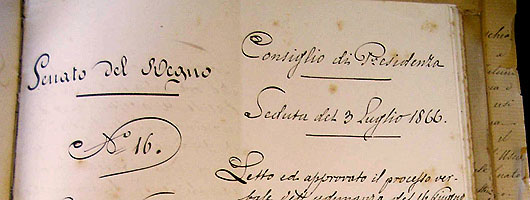 Senato del Regno
N.º 16.
Consiglio di Presidenza
Seduta del 3 Luglio 1866.
Letto ed approvato il processo ver-
bale dell'adunanza del 16 giugno